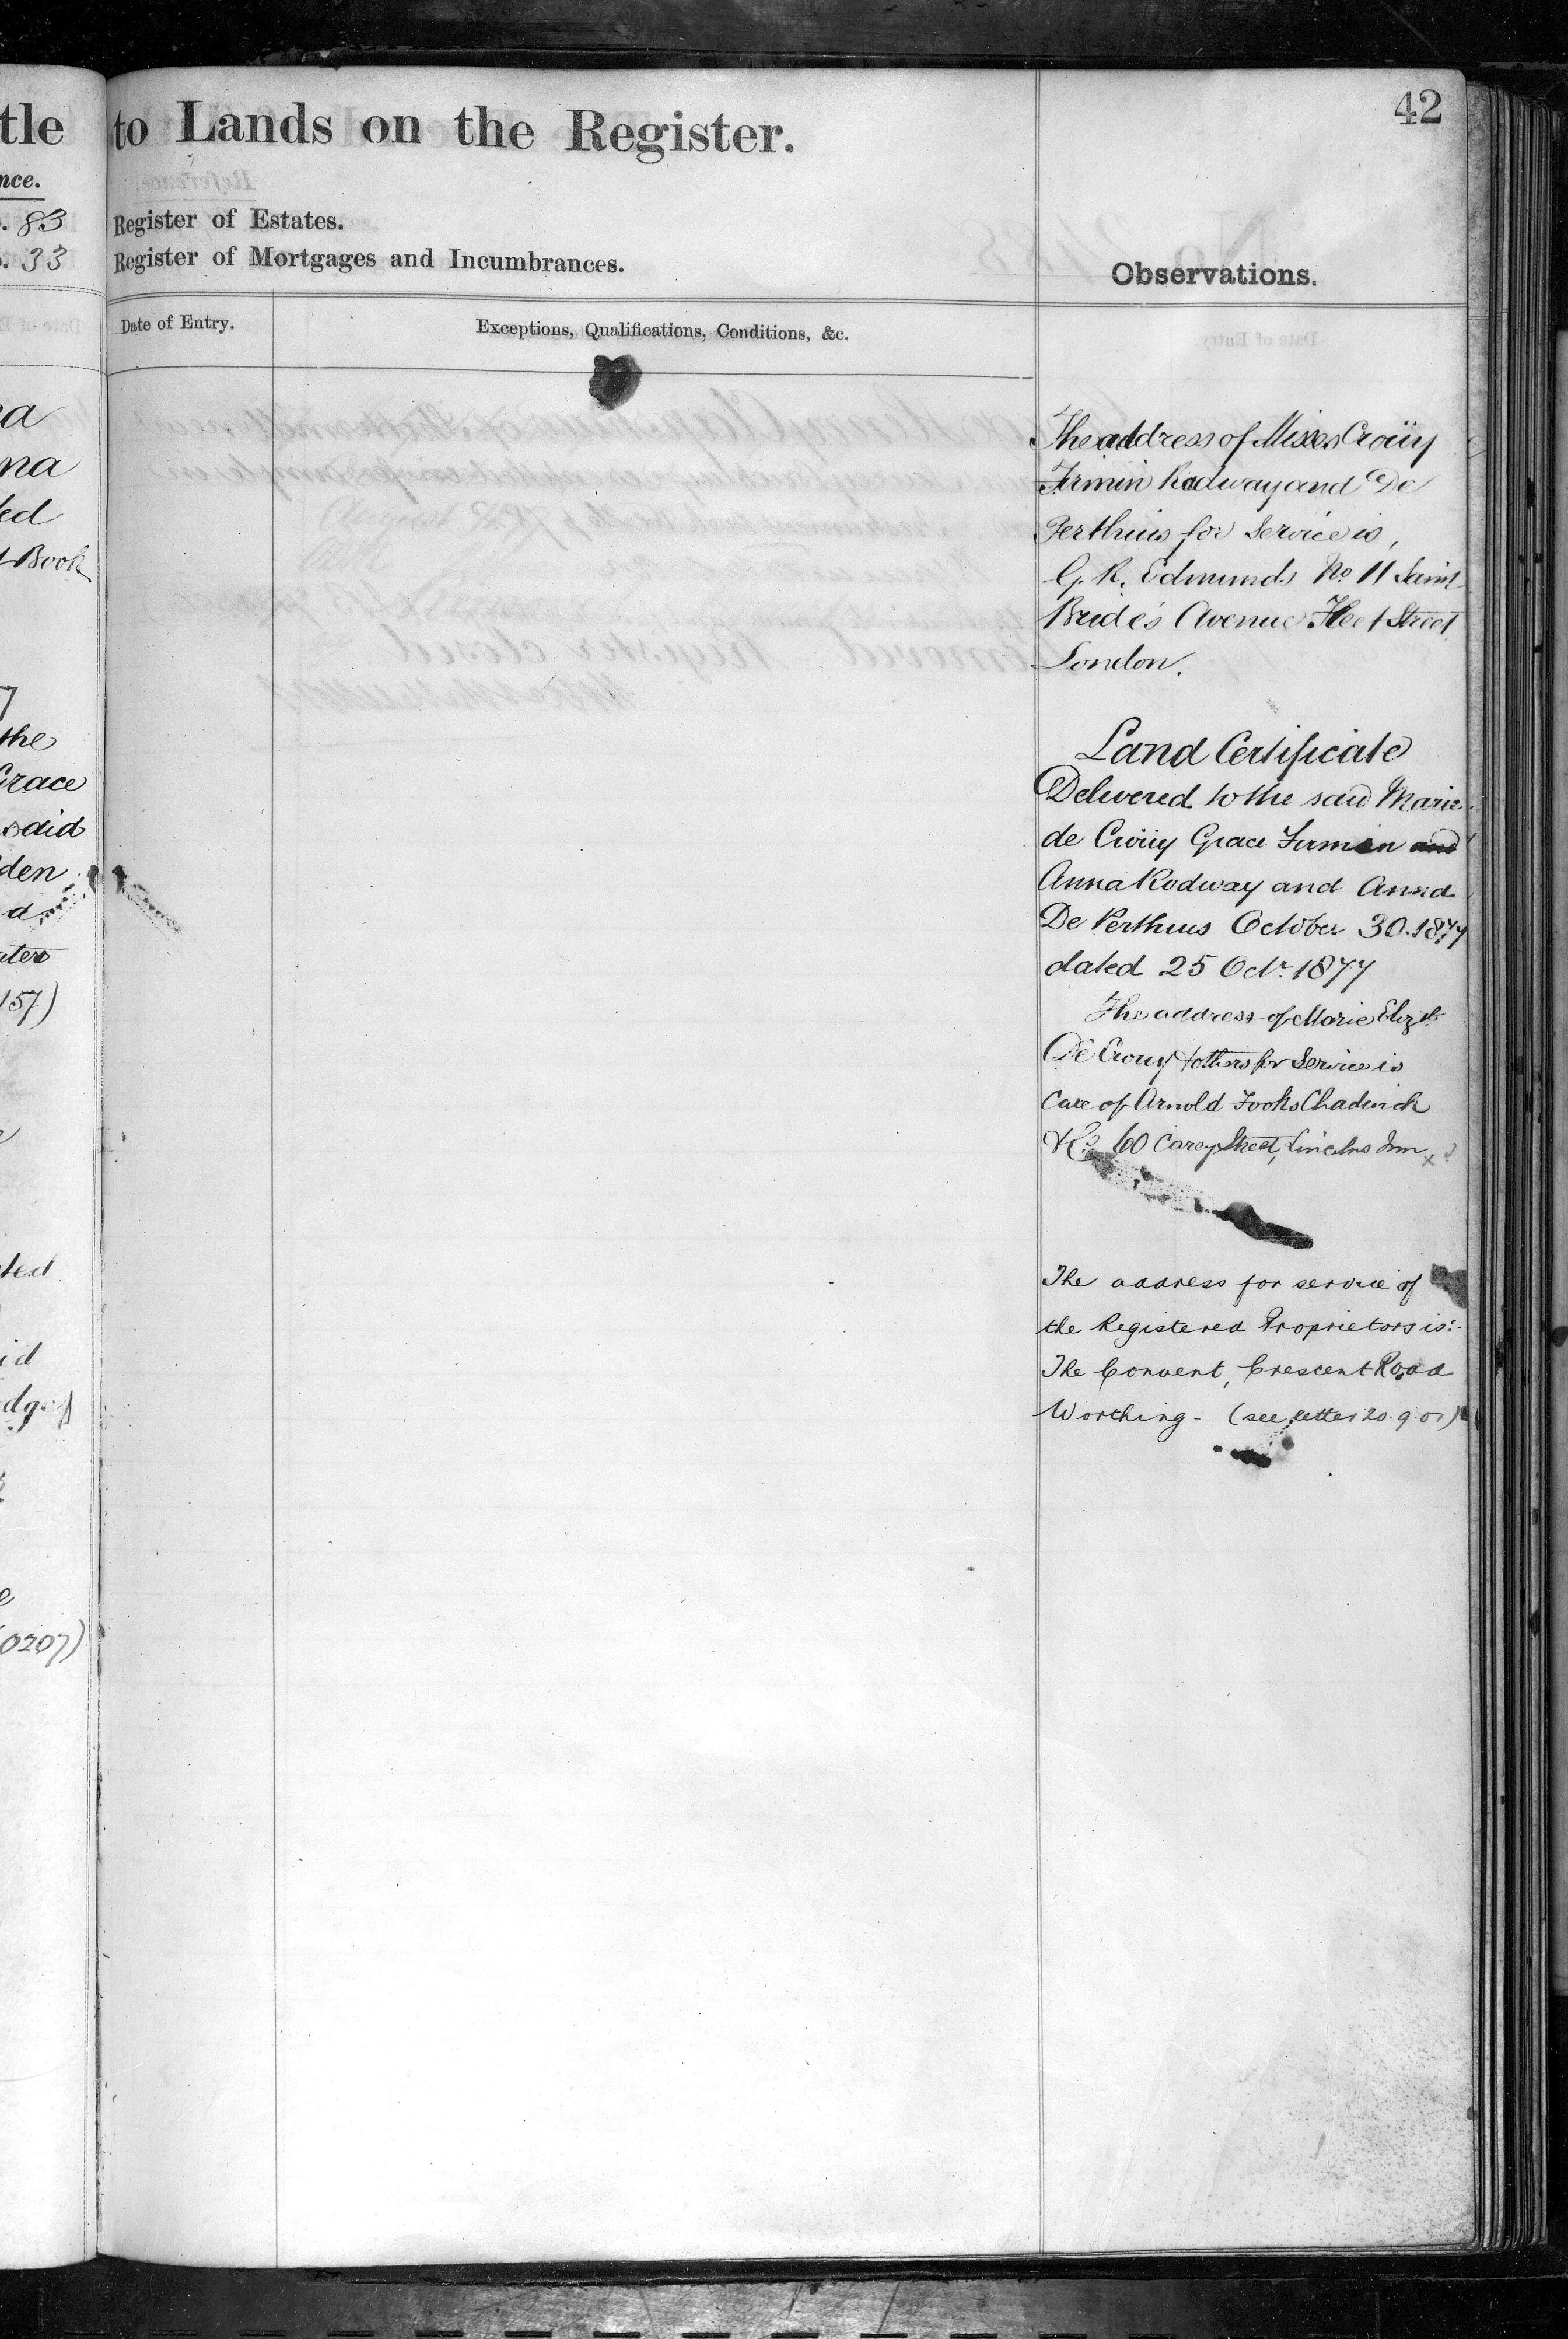 42
tle to Lands on the Register.
nce.
. 83 Register of Estates.
. 33 Register of Mortgages and Incumbrances.
Observations.
Date of Entry.
Exceptions, Qualifications, Conditions, &c.
na
ed
Book
the
Grace
said
den
d
157)
ted
id
0207)
The address of Misses Croüy
Firmin Rodway and De
Perthuis for Service is,
G. R. Edmunds No 11 Saint
Bride's Avenue Fleet Street
London.
Land Certificate
Delivered to the said Marie
de Croüy Grace Firmin and
Anna Rodway and Anna
De Perthuis October 30. 1877
dated 25 Octr. 1877
The address of Marie Elizth
De Crouy & others for Service is
Care of Arnold Fooks Chadwick
& Co 60 Carey Street, Lincolns Inn
The address for service of
the Registered Proprietors is:-
The Convent, Crescent Road
Worthing - (see letter 20.9.01)